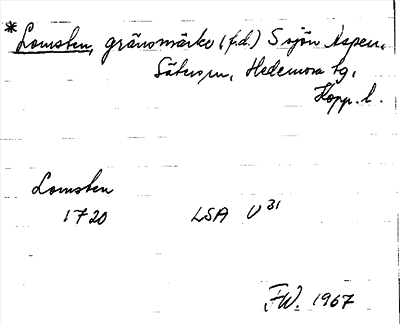 * Lomsten, gränsmärke (f.d.) S sjön Aspen,
Säters sn, Hedemora tg,
Kopp. l.
Lomsten
1720 LSA U 31
FW. 1967